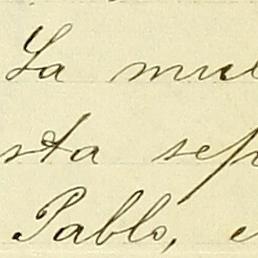 La mul
sta sep
Pablo, e